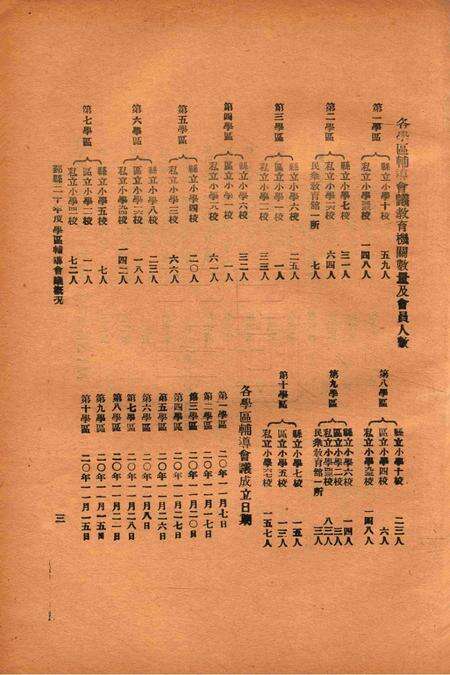 各學區輔導會議教育機關數量及會員人數
第一學區
縣立小學十校 五九人
私立小學 校 一四八人
第二學區
縣立小學七校 三一人
私立小學 校 六四人
民衆教育館一所 七人
第三學區
縣立小學六校 二五人
區立小學一校 一人
私立小學 校 三三人
第四學區
縣立小學六校 三二人
區立小學一校 一人
私立小學 校 六一人
第五學區
縣立小學四校 二〇人
私立小學 校 六六人
第六學區
縣立小學八校 二三人
區立小學 校 一八人
私立小學 校 一四二人
第七學區
縣立小學五校 七人
區立小學 校 一一人
私立小學 校 七二人
鄞縣二十年度學區輔導會議概況
第八學區
縣立小學十校 二三人
區立小學四校 六人
私立小學 校 一四八人
第九學區
縣立小學六校 一四人
區立小學 校 三人
私立小學 校 八三人
民衆教育館一所 三人
第十學區
縣立小學六校 一五人
區立小學五校 一三人
私立小學 校 一五七人
各學區輔導會議成立日期
第一學區 二〇年一一月七日
第二學區 二〇年一一月一七日
第三學區 二〇年一一月二〇日
第四學區 二〇年一一月二七日
第五學區 二〇年一一月二六日
第六學區 二〇年一一月八日
第七學區 二〇年一一月二八日
第八學區 二〇年一一月二一日
第九學區 二〇年一一月一五日
第十學區 二〇年一一月一五日
三